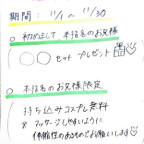 期間：11/1 〜 11/30
○ 初めまして本指名のお客様
◯◯セットプレゼント
○ 本指名のお客様限定
持ち込みコスプレ無料
※マッサージしやすいように
伸縮性のあるものでお願いします